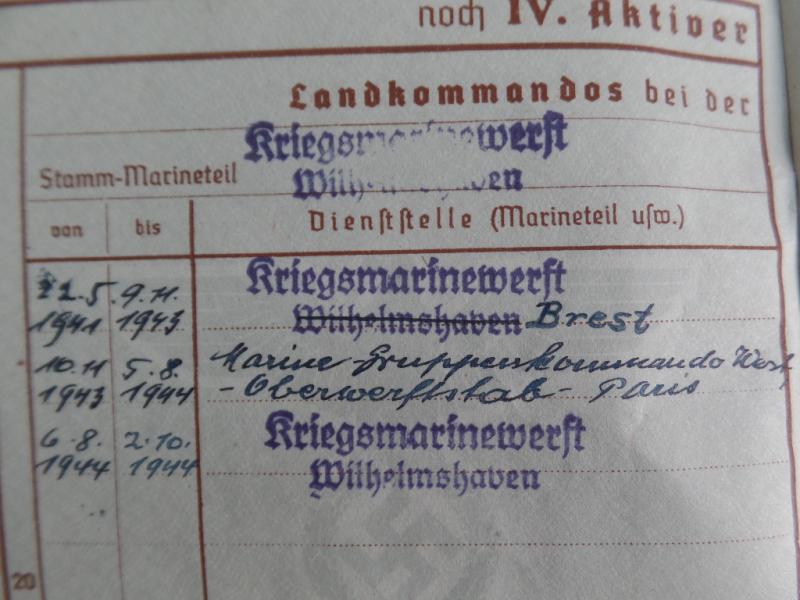 noch IV. Aktiver
Landkommandos bei der
Kriegsmarinewerft
Stamm-Marineteil Wilhelmshaven
von bis Dienststelle (Marineteil usw.)
22.5. 9.11. Kriegsmarinewerft
1941 1943 Wilhelmshaven Brest
10.11 5.8. Marine-Gruppenkommando West
1943 1944 - Oberwerftstab - Paris
6.8. 2.10. Kriegsmarinewerft
1944 1944 Wilhelmshaven
20